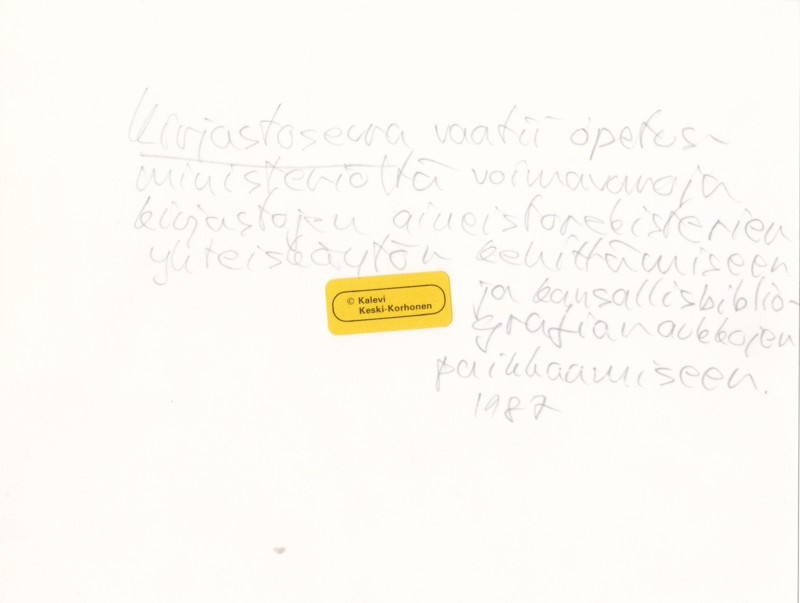 Kirjastoseura vaatii opetus-
ministeriöltä voimavaroja
kirjastojen aineistorekisterien
yhteiskäytön kehittämiseen
ja kansallisbiblio-
grafian aukkojen
paikkaamiseen.
1987
© Kalevi
Keski-Korhonen